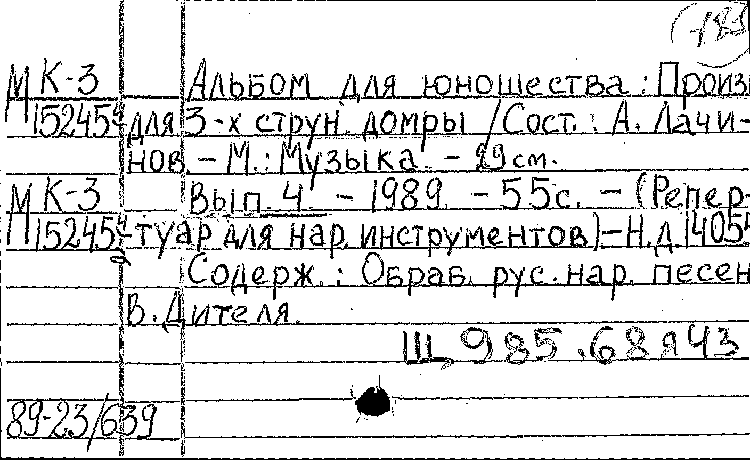 183
М К-3 Альбом для юношества : Произв
15245 для 3-х струн. домры / Сост. : А. Лачи-
нов. - М. : Музыка. - 29 см.
М К-3 Вып. 4. - 1989. - 55 с. - (Репер-
15245 туар для нар. инструментов). - Н.д. 14054
Содерж. : Обраб. рус. нар. песен
В. Дителя.
Щ 985.68 я43
89-23/639